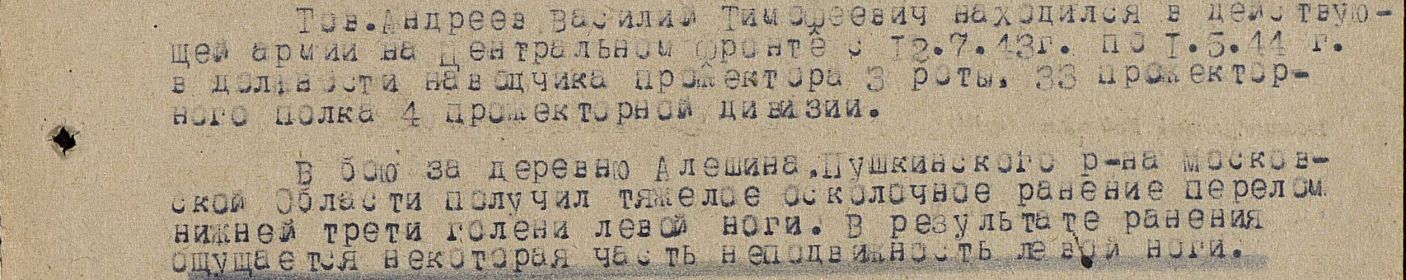 Тов.Андреев Василий Тимофеевич находился в действую-
щей армии на Центральном фронте с 12.7.43г. по 1.5.44 г.
в должности наводчика прожектора 3 роты, 33 прожектор-
ного полка 4 прожекторной дивизии.
В бою за деревню Алешина,Пушкинского р-на Москов-
ской Области получил тяжелое осколочное ранение перелом
нижней трети голени левой ноги. В результате ранения
ощущается некоторая часть неподвижность левой ноги.